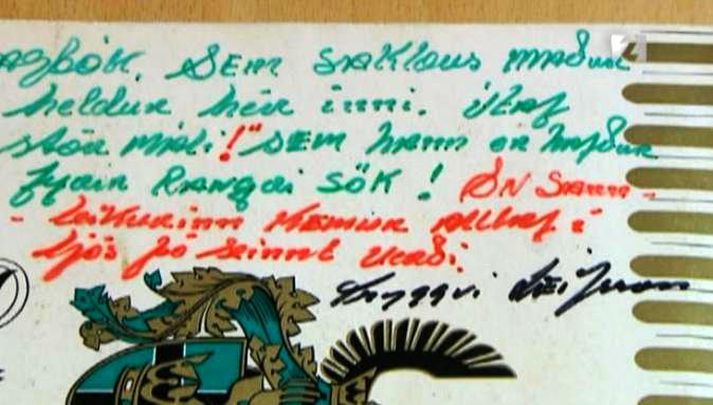 agbók. SEm SaKlaus maður
heldur hér inni. útaf
stóra máli!" SEM hann er hafður
fyrir Rangri SÖK! EN Sann-
- leikurinn Kemur Alltaf í
ljós þó Seinnt Verði.
Tryggvi Leifsson